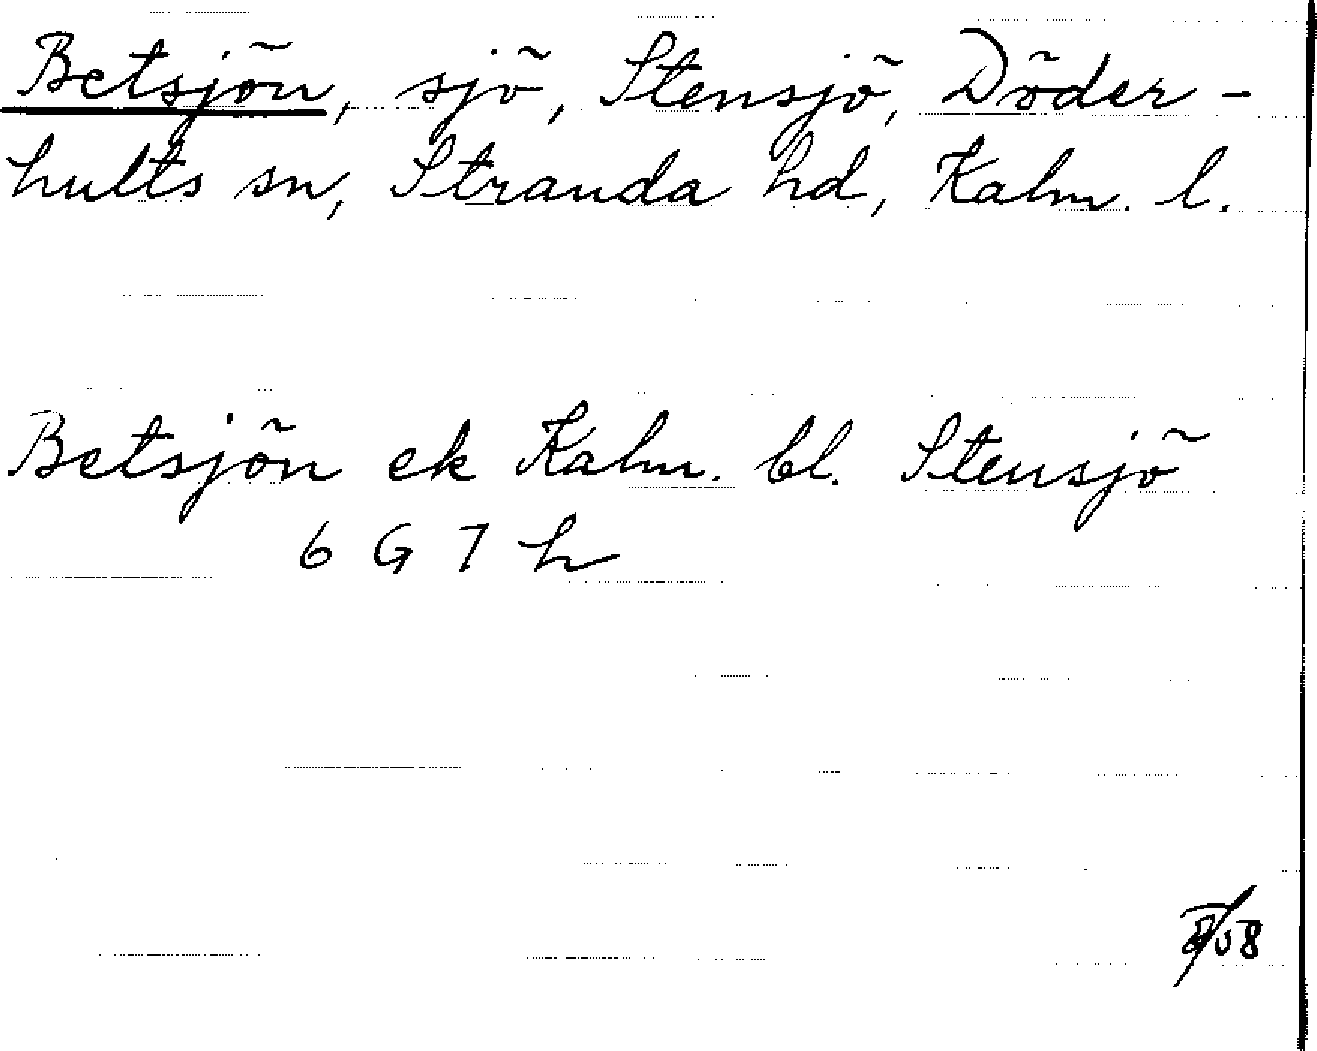 Betsjön, sjö, Stensjö, Döder-
hults sn, Stranda hd, Kalm. l.
Betsjön ek Kalm. bl. Stensjö
6 G 7 h